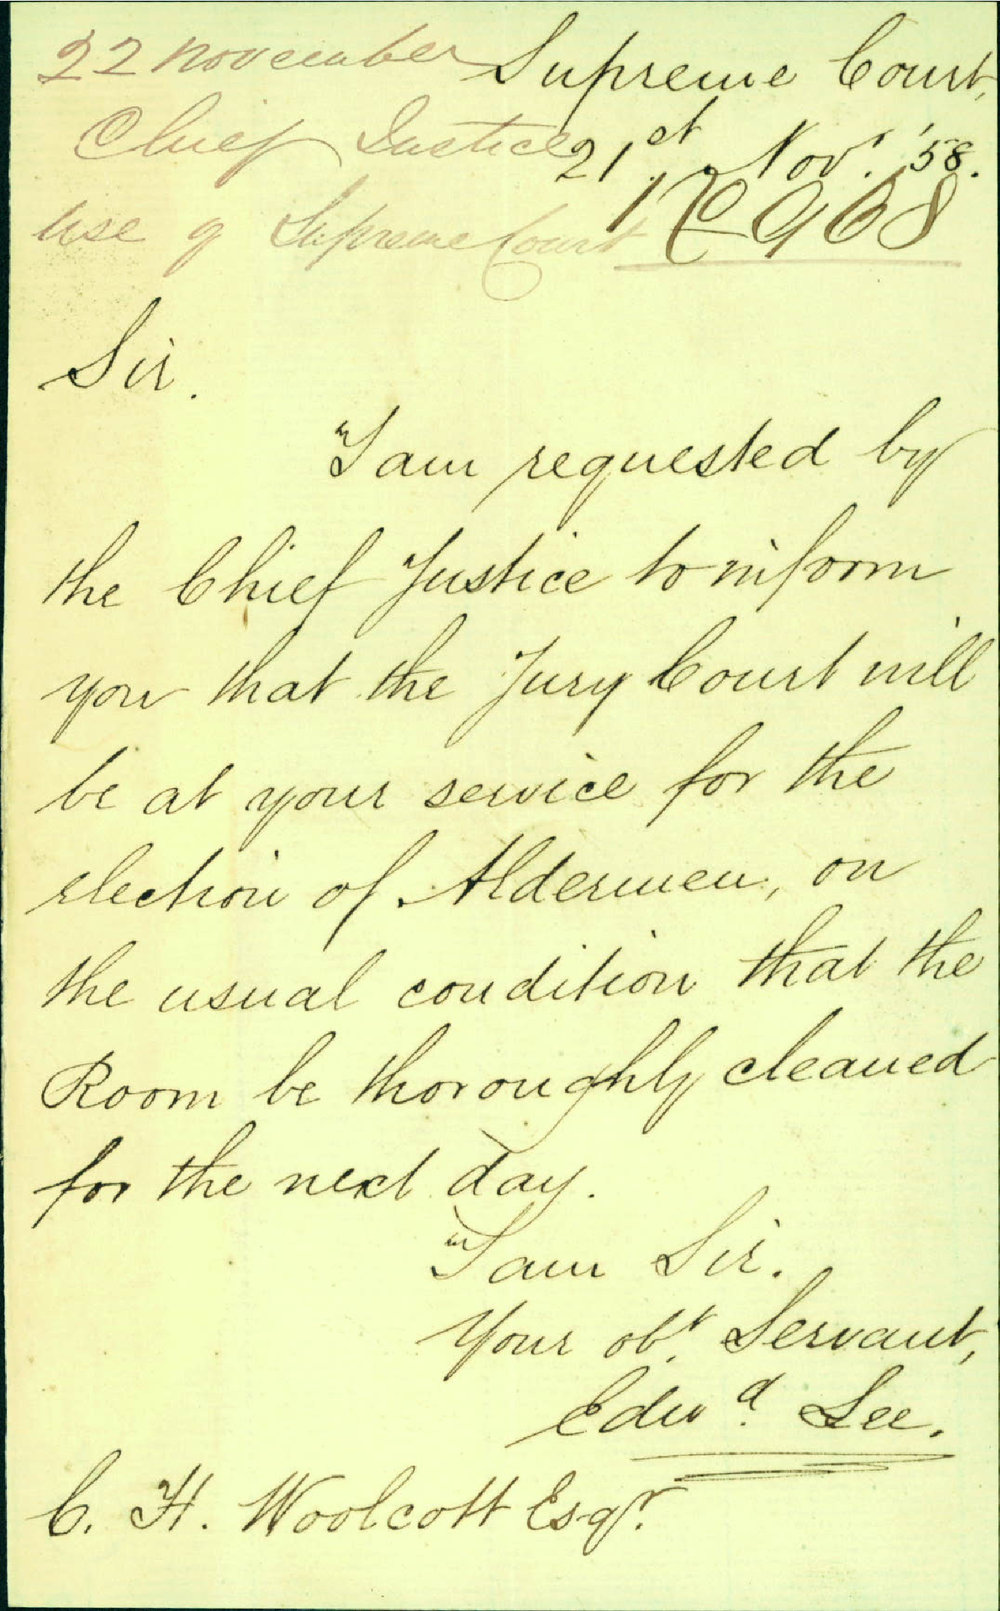 22 November Supreme Court,
Chief Justice 21st. Novr. '58.
use of Supreme Court No 968
Sir.
I am requested by
the Chief Justice to inform
you that the Jury Court will
be at your service for the
election of Aldermen, on
the usual condition that the
Room be thoroughly cleaned
for the next day.
I am Sir.
Your obt. Servant,
Edwd. Lee.
C. H. Woolcott Esqr.